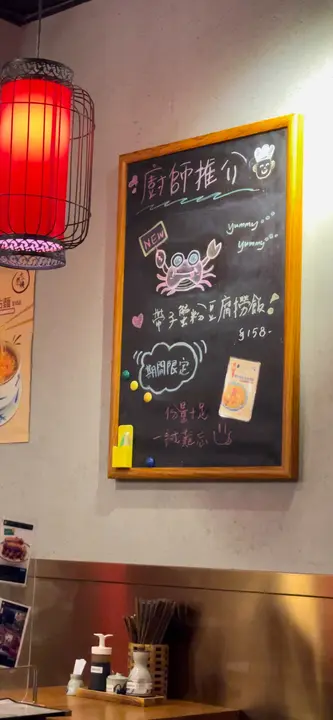 廚師推介
yummy...
yummy...
NEW
帶子蟹粉豆腐撈飯!
$158-
期間限定
份量十足
一試難忘